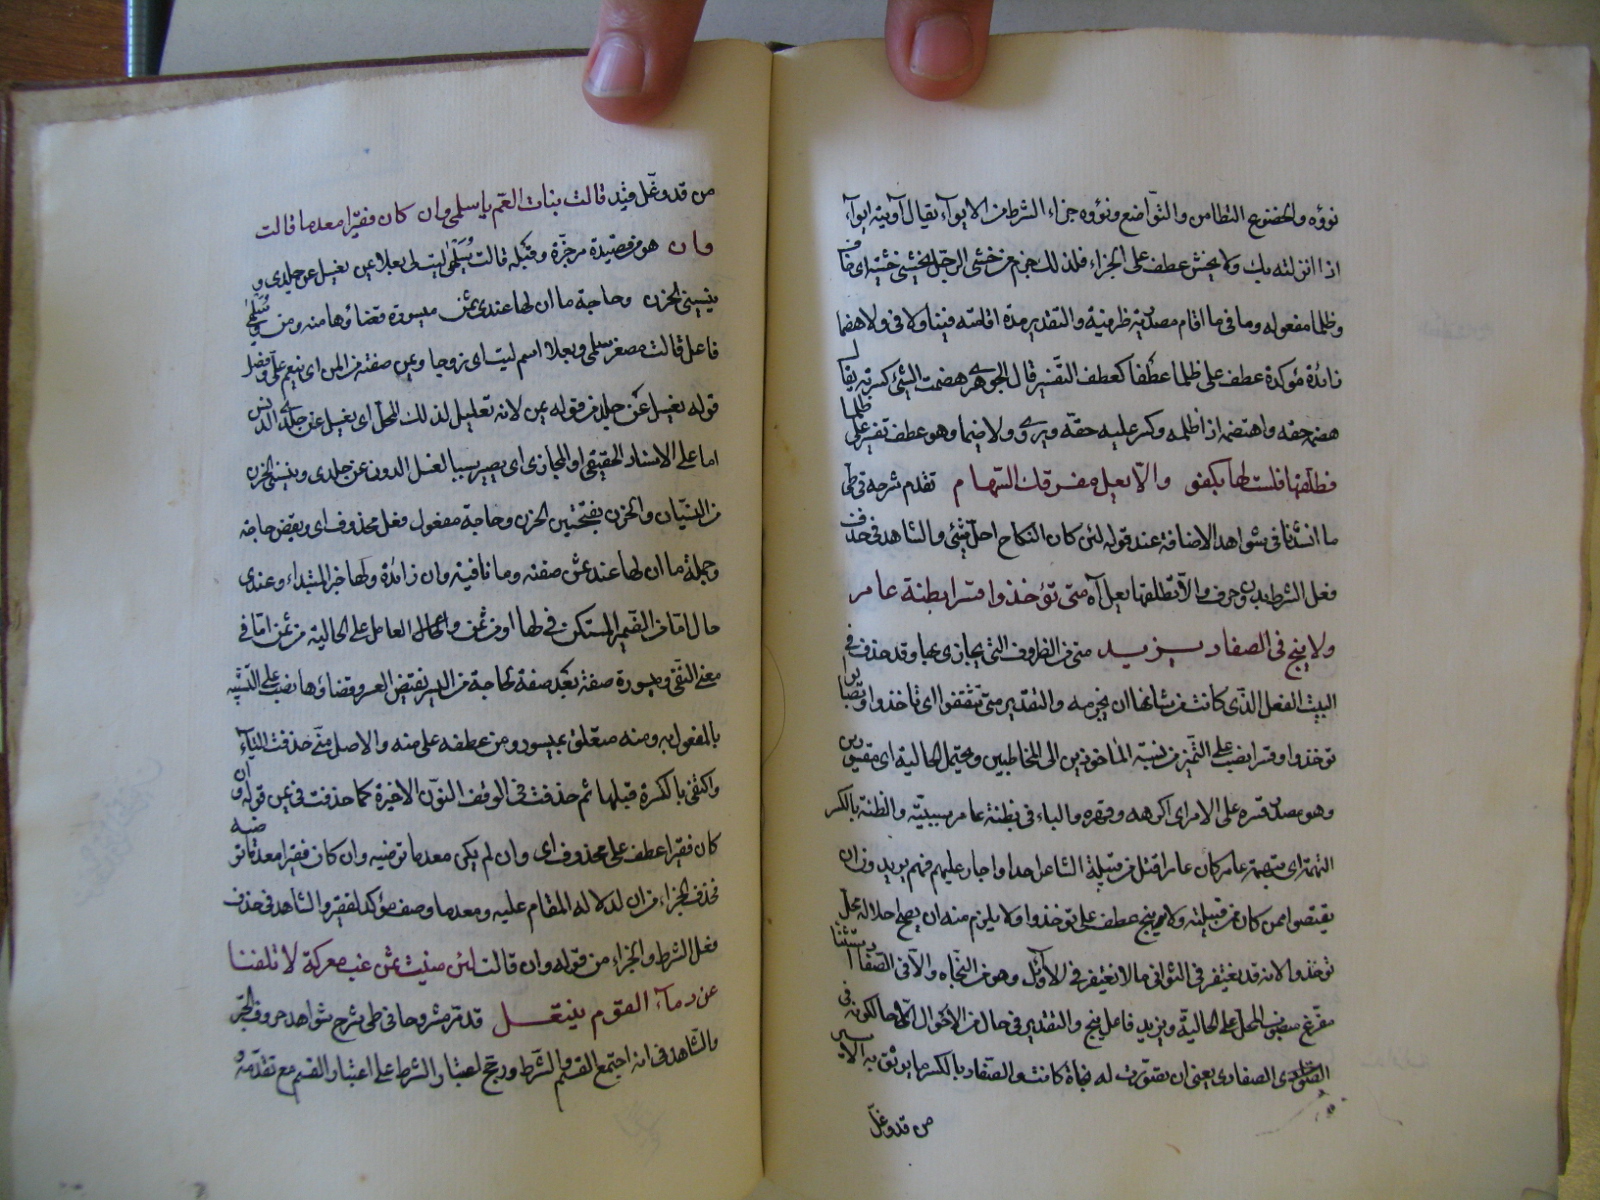 نؤوه والخضوع التطامن والتواضع ونؤوه جزاء الشرط من الايواء يقال آويته ايواء
اذا انزلته بك ولا يخش عطف على الجزاء فلذلك جزم من خشى الرجل يخشى خشية اى خاف
وظلما مفعوله وما فى ما اقام مصدرية ظرفية والتقدير مدة اقامته فينا ولا فى ولا هضما
زائدة مؤكدة عطف على ظلما عطفا كعطف التفسير قال الجوهرى هضمت الشئ كسرته يقال
هضمه حقه واهتضمه اذا ظلمه وكسر عليه حقه ويروى ولا ضيما وهو عطف تفسير على ظلما
فطلقها فلست لها بكفو والا يعل مفرقك الحسام تقدم شرحه فى طى
ما انشدنا فى شواهد الاضافة عند قوله لئن كان النكاح احل شئ والشاهد فى حذف
فعل الشرط بدون حرف والا تطلقها يعل آه متى تؤخذوا قسرا بظنة عامر
ولا ينج فى الصفاد يزيد متى من الظروف التى يجازى بها وقد حذف فى
البيت الفعل الذى كانت من شانها ان يجزمه والتقدير متى تثقفوا اى تاخذوا وتصابوا
تؤخذوا وقسرا نصب على التمييز من نسبة الماخوذين الى المخاطبين ويحتمل الحالية اى مقسورين
وهو مصدر قسره على الامر اى اكرهه وقهره والباء فى بظنة عامر سببية والظنة بالكسر
التهمة اى بتهمة عامر كان عامرا قتل من قبيلة الشاعر احدا واجار عليهم فهم يريدون ان
يقتصوا ممن كان من قبيلته ولا ينج عطف على تؤخذوا ولا يلزم منه ان يصح احلاله محل
تؤخذوا لانه قد يغتفر فى الثوانى ما لا يغتفر فى الاوائل وهو من النجاة والا فى الصفاد استثنا
مفرغ منصوب المحل على الحالية ويزيد فاعل ينج والتقدير فى حال من الاحوال الا حالكونه فى
الصفاد يعنى ان تصورت له نجاة كانت الصفاد بالكسر ما يوثق به الاسير
من قد وغل
من قد وغل فيئد قالت بنات العم يا سلمى وان كان فقيرا معدما قالت
وان هو من قصيدة مرجزة وقبله قالت سليمى ليت لى بعلا يمن يغسل عن جلدى و
ينسينى الحزن وحاجة ما ان لها عندى ثمن ميسورة قضاؤها منه ومن وسليمى
فاعل قالت مصغر سلمى وبعلا اسم ليت اى زوجا ويمن صفته من المن اى ينعم على وفصل
قوله يغسل عن جلدى من قوله يمن لانه تعليل لذلك المحل اى يغسل عن جلدى الدنس
اما على الاسناد الحقيقى او المجازى اى يصير سببا لغسل الدرن عن جلدى وينسى الحزن
من النسيان والحزن بفتحتين الحزن وحاجة مفعول فعل محذوف اى ويقض حاجة
وجملة ما ان لها عندى ثمن صفته وما نافية وان زائدة ولها خبر المبتداء وعندى
حال اما من الضمير المستكن فى لها او من ثمن والحال العامل على الحالية من ثمن اما فى
معنى النفى وميسورة صفة بعد صفة لحاجة من اليسر نقيض العسر وقضاؤها نصب على التشبيه
بالمفعول به ومنه متعلق بميسورة ومن عطفه على منه والاصل منى حذفت الياء
واكتفى بالكسرة قبلها ثم حذفت فى الوقف النون الاخيرة كما حذفت فى يمن قوله وان
كان فقيرا عطف على محذوف اى وان لم يكن معدما ترضيه وان كان فقيرا معدما ترضيه
فحذف الجزاء من ان لدلالة المقام عليه ومعدما وصف مؤكد لفقير والشاهد فى حذف
فعل الشرط والجزاء من قوله وان قالت لئن منيت بنا عن غب معركة لا تلفنا
عن دماء القوم ننتفل قد مر مشروحا فى طى شرح شواهد حروف الجر
والشاهد فى انه اجتمع القسم والشرط ورجح اعتبار الشرط على اعتبار القسم مع تقدمه و